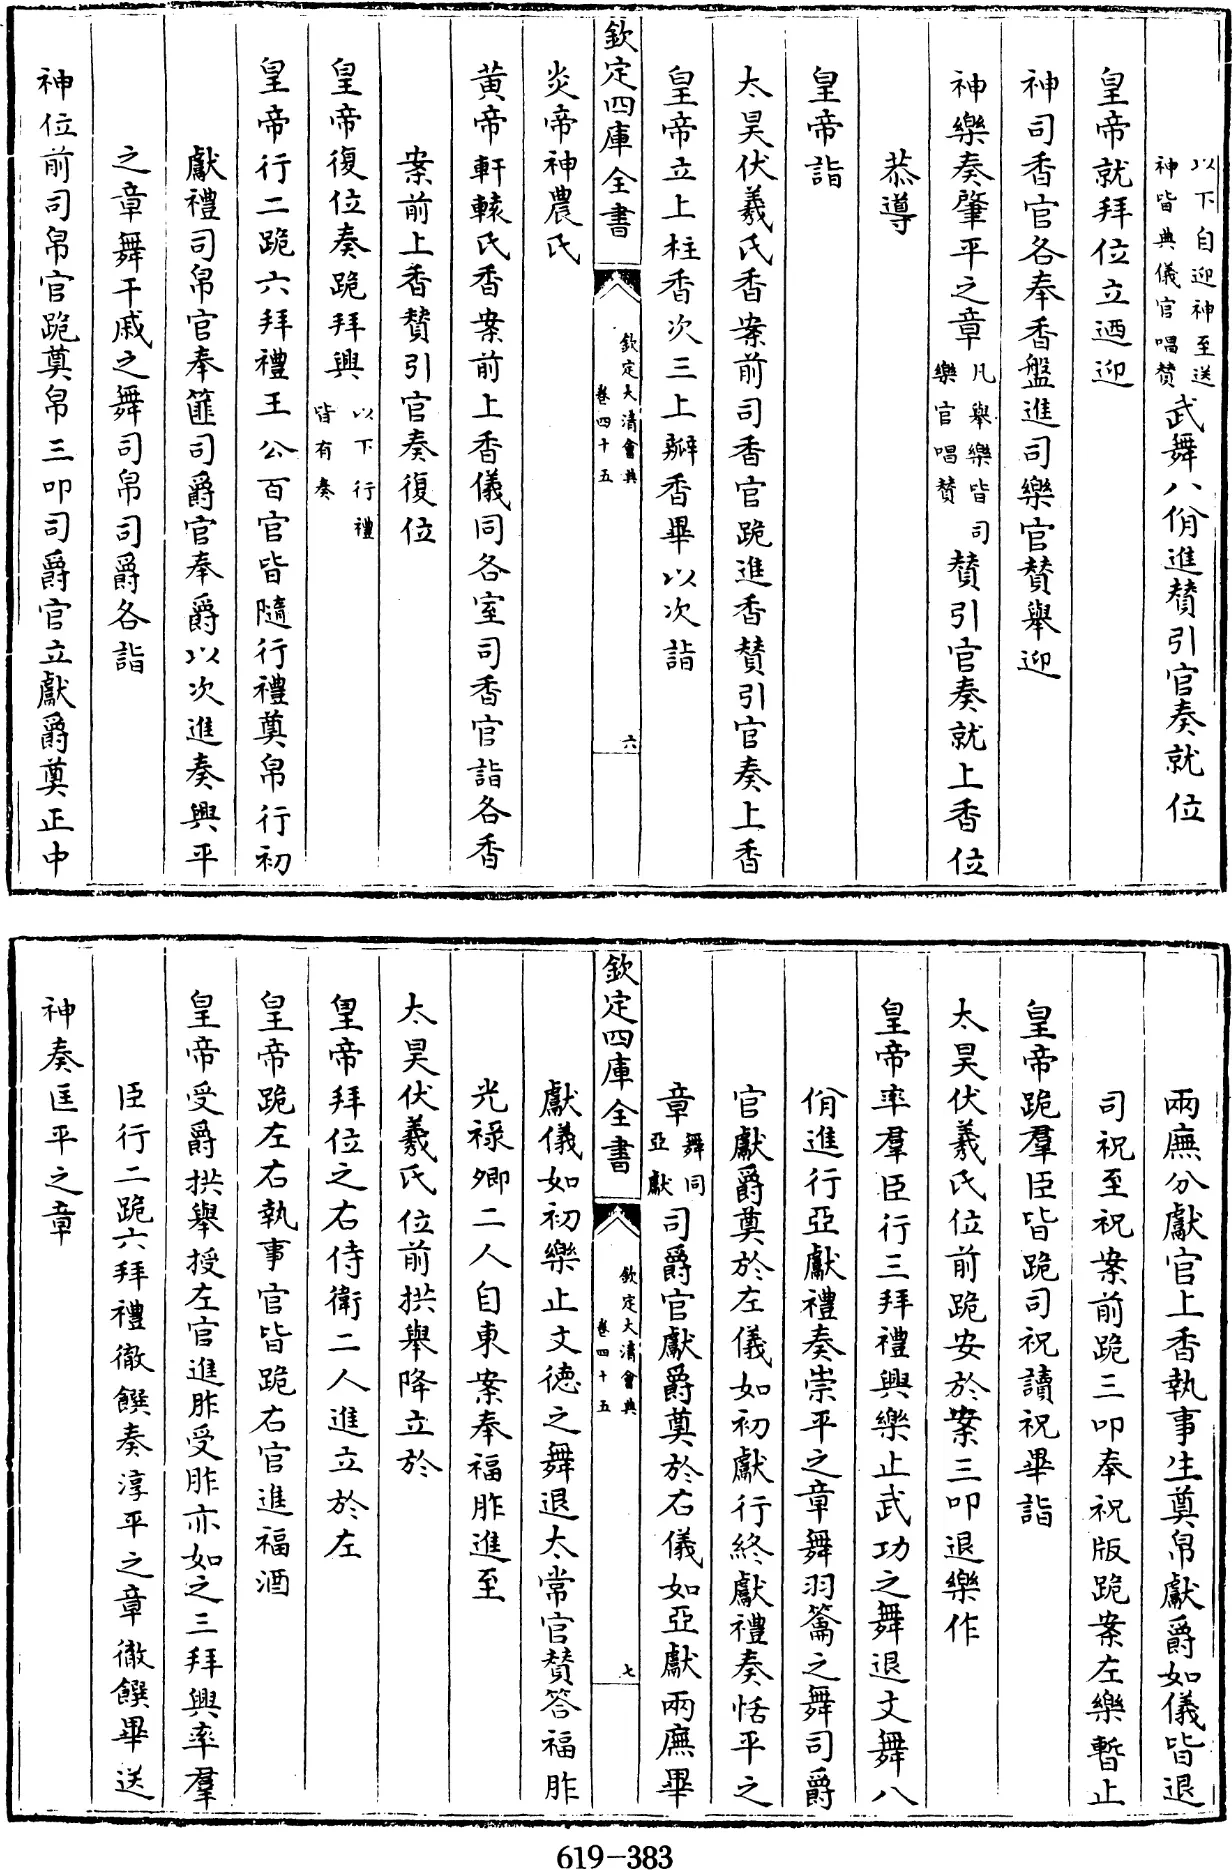 以下自迎神至送
神皆典儀官唱贊
武舞八佾進贊引官奏就位
皇帝就拜位立迺迎
神司香官各奉香盤進司樂官贊舉迎
神樂奏肇平之章
凡舉樂皆司
樂官唱贊
贊引官奏就上香位
恭導
皇帝詣
太昊伏羲氏香案前司香官跪進香贊引官奏上香
皇帝立上柱香次三上瓣香畢以次詣
欽定四庫全書
欽定大清會典
卷四十五
六
炎帝神農氏
黃帝軒轅氏香案前上香儀同各室司香官詣各香
案前上香贊引官奏復位
皇帝復位奏跪拜興
以下行禮
皆有奏
皇帝行二跪六拜禮王公百官皆隨行禮奠帛行初
獻禮司帛官奉篚司爵官奉爵以次進奏興平
之章舞干戚之舞司帛司爵各詣
神位前司帛官跪奠帛三叩司爵官立獻爵奠正中
兩廡分獻官上香執事生奠帛獻爵如儀皆退
司祝至祝案前跪三叩奉祝版跪案左樂暫止
皇帝跪羣臣皆跪司祝讀祝畢詣
太昊伏羲氏位前跪安於案三叩退樂作
皇帝率羣臣行三拜禮興樂止武功之舞退文舞八
佾進行亞獻禮奏崇平之章舞羽籥之舞司爵
官獻爵奠於左儀如初獻行終獻禮奏恬平之
章
舞同
亞獻
司爵官獻爵奠於右儀如亞獻兩廡畢
欽定四庫全書
欽定大清會典
卷四十五
七
獻儀如初樂止文德之舞退太常官贊答福胙
光祿卿二人自東案奉福胙進至
太昊伏羲氏位前拱舉降立於
皇帝拜位之右侍衛二人進立於左
皇帝跪左右執事官皆跪右官進福酒
皇帝受爵拱舉授左官進胙受胙亦如之三拜興率羣
臣行二跪六拜禮徹饌奏淳平之章徹饌畢送
神奏匡平之章
619-383